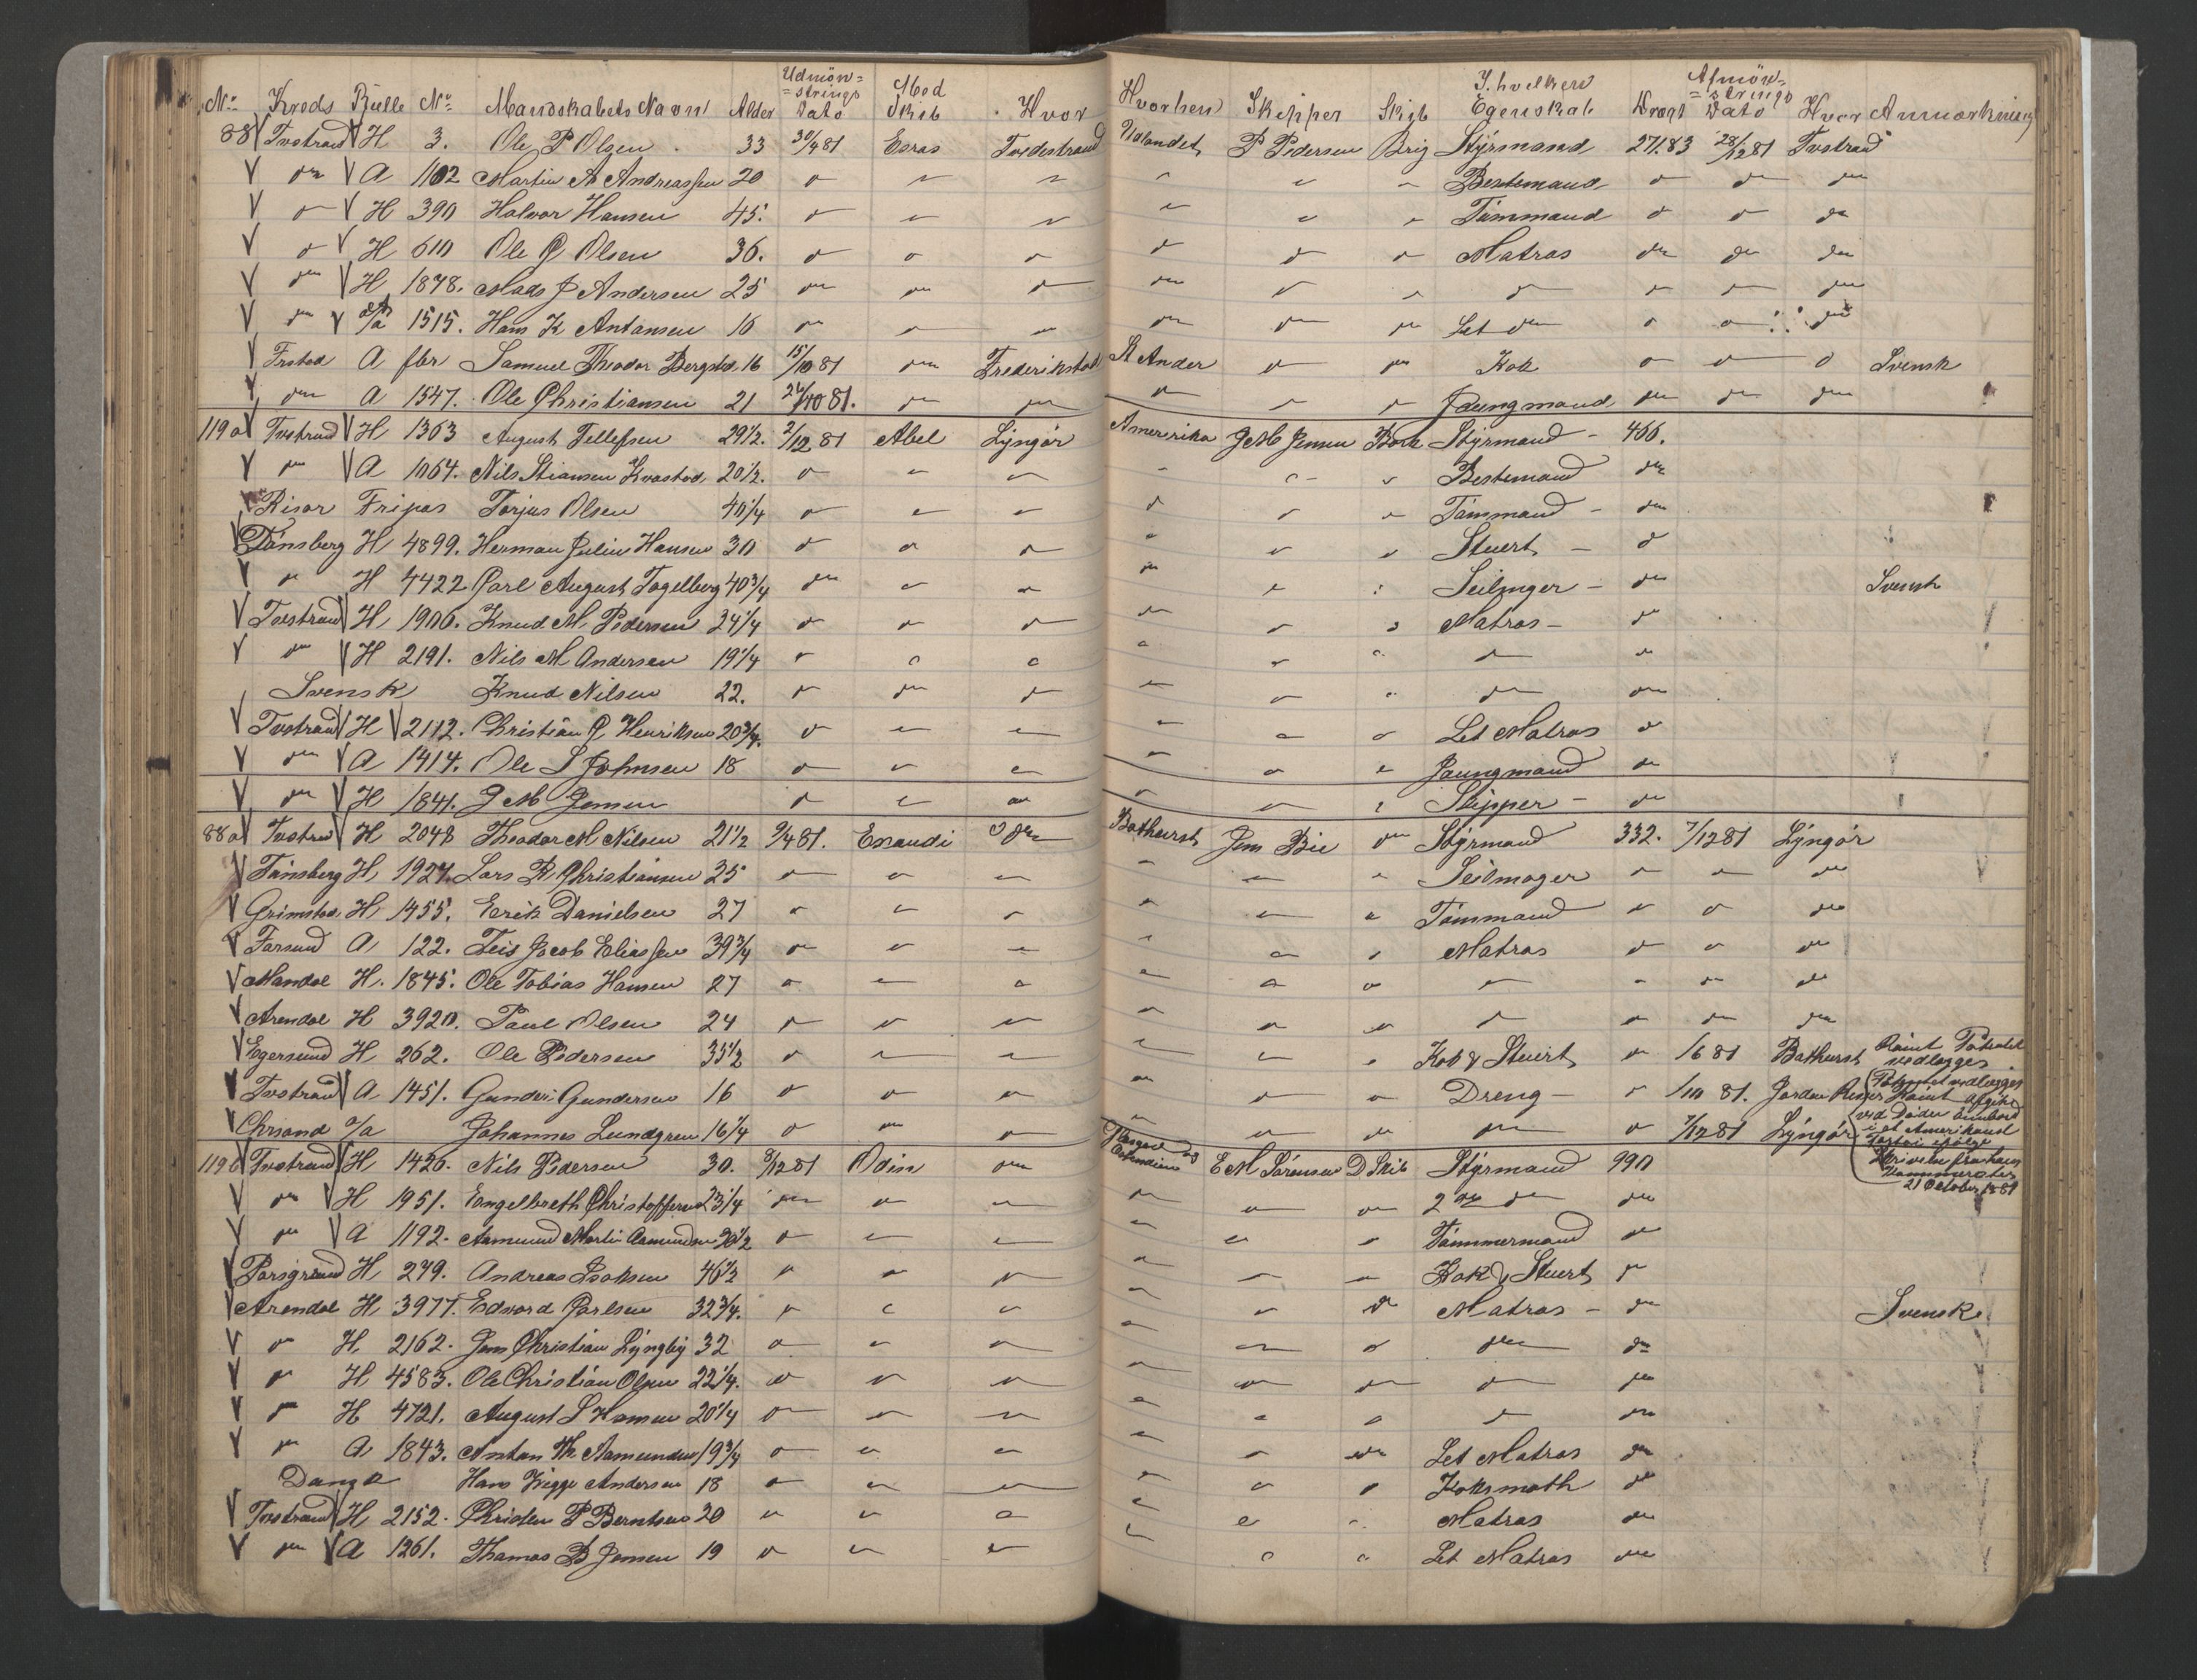 No Kreds Rulle No Mandskabets Navn Alder Udmøn=strings Dato Med Skib Hvor Hvorhen Skipper Skib I hvilken Egenskab Drægt Afmøn=strings Dato Hvor Anmærkning
88 Tvstrand H 3. Ole P Olsen 33 30/4 81 Esras Tvedestrand Udlandet P Pedersen Brig Styrmand 271.83 28/12 81 Tvstrand
do A 1102 Martin A Andreassen 20 do Bestemand do do do
do H 390 Halvor Hansen 45. do Tømmand do do do
do H 610 Ole P Olsen 36. do Matros do do do
do H 1878. Mads J Andersen 25 do do do do do
do 1515. Hans K Antonsen 16 do Let do do do do
Frstad A fbr Samuel Theodor Bergsted 16 15/10 81 do Frederikstad St Ander do do Kok do do do Svensk
do A 1547. Ole Christiansen 21 24/10 81. do do do do do Jaungmand do do do
119 a Tvstrand H 1363 August Tellefsen 29 1/2. 2/12 81 Abel Lyngør Amererika J M Jensen Bark Styrmand - 466.
do A 1064. Nils Stiansen Kvastad 20 1/2. do Bestemand do
Risør Fripas Torjus Olsen 40 1/4 do Tømmand - do
Tønsberg H 4899. Herman Julius Hansen 30 do Stuert - do
do H 4422 Carl August Fogelberg 40 3/4 do Seilmger - do Svensk
Tvstrand H 1906. Knud M. Pedersen 24 1/4 do Matros - do
do H 2191. Nils M Andersen 19 1/4 do do do
Svensk Knud Nilsen 22. do do do do do
Tvstrand H 2112. Christian C Henriksen 20 3/4. do Let Matros do
do A 1414. Ole S Johnsen 18 do Jaungmand do
do H 1841. J M Jensen do Skipper - do
88 a Tvstrand H 2048 Theodor M Nilsen 21 1/2 9/4 81. Exaudi do Bathurst Jens Bie do Styrmand 332. 7/12 81 Lyngør
Tønsberg H 1927. Lars R Christiansen 25 do Seilmager do do do
Grimstad H 1455. Eerik Danielsen 27 do Tømmand do do do
Farsund A 122. Teis Jacob Eliassen 39 3/4 do Matros do do do
Mandal H. 1845. Ole Tobias Hansen 27 do do do do do
Arendal H 3920. Paul Olsen 24 do do do do do
Egersund H 262. Ole Pedersen 35 1/2 do Kok & Stuert do 1/6 81 Bathurst Rømt Patentet vedlægges
Tvstrand A 1451. Gunder Gundersen 16 do Dreng - do 1/10 81. Jordan River Rømt
Chrsand o/a Johannes Lundgren 16 1/4 do do do 7/12 81 Lyngør
ved Døden ombord i et Amerikansk
21 October 1881
119 b Tvstrand H 1426. Nils Pedersen 30. 8/12 81 Odin do E M Sørensen D Skib Styrmand 990
do H 1951. Engelbreth Christoffersen 23 1/4 do 2den do do
do A 1192. Aamund Martin Aamundsen 20 1/2 do Tømmermand do
Porsgrund H 279. Andreas Isaksen 46 1/2 do Kok & Stuert do
Arendal H 3977. Edvard Carlsen 32 3/4. do Matros - do Svensk
do H 2162. Jens Christian Lyngby 32 do do do
do H 4583. Ole Christian Olsen 22 1/4. do do do
do H 4721. August S Hansen 20 1/4 do do do
do A 1843. Anton Th. Aamundsen 19 3/4 do Let Matros do
Dansk Hans Vigge Andersen 18 do Koksmath do
Tvstrand H 2152. Christen P Berntsen 20 do Matros do
do A 1261. Thomas B Jensen 19 do Let Matros do